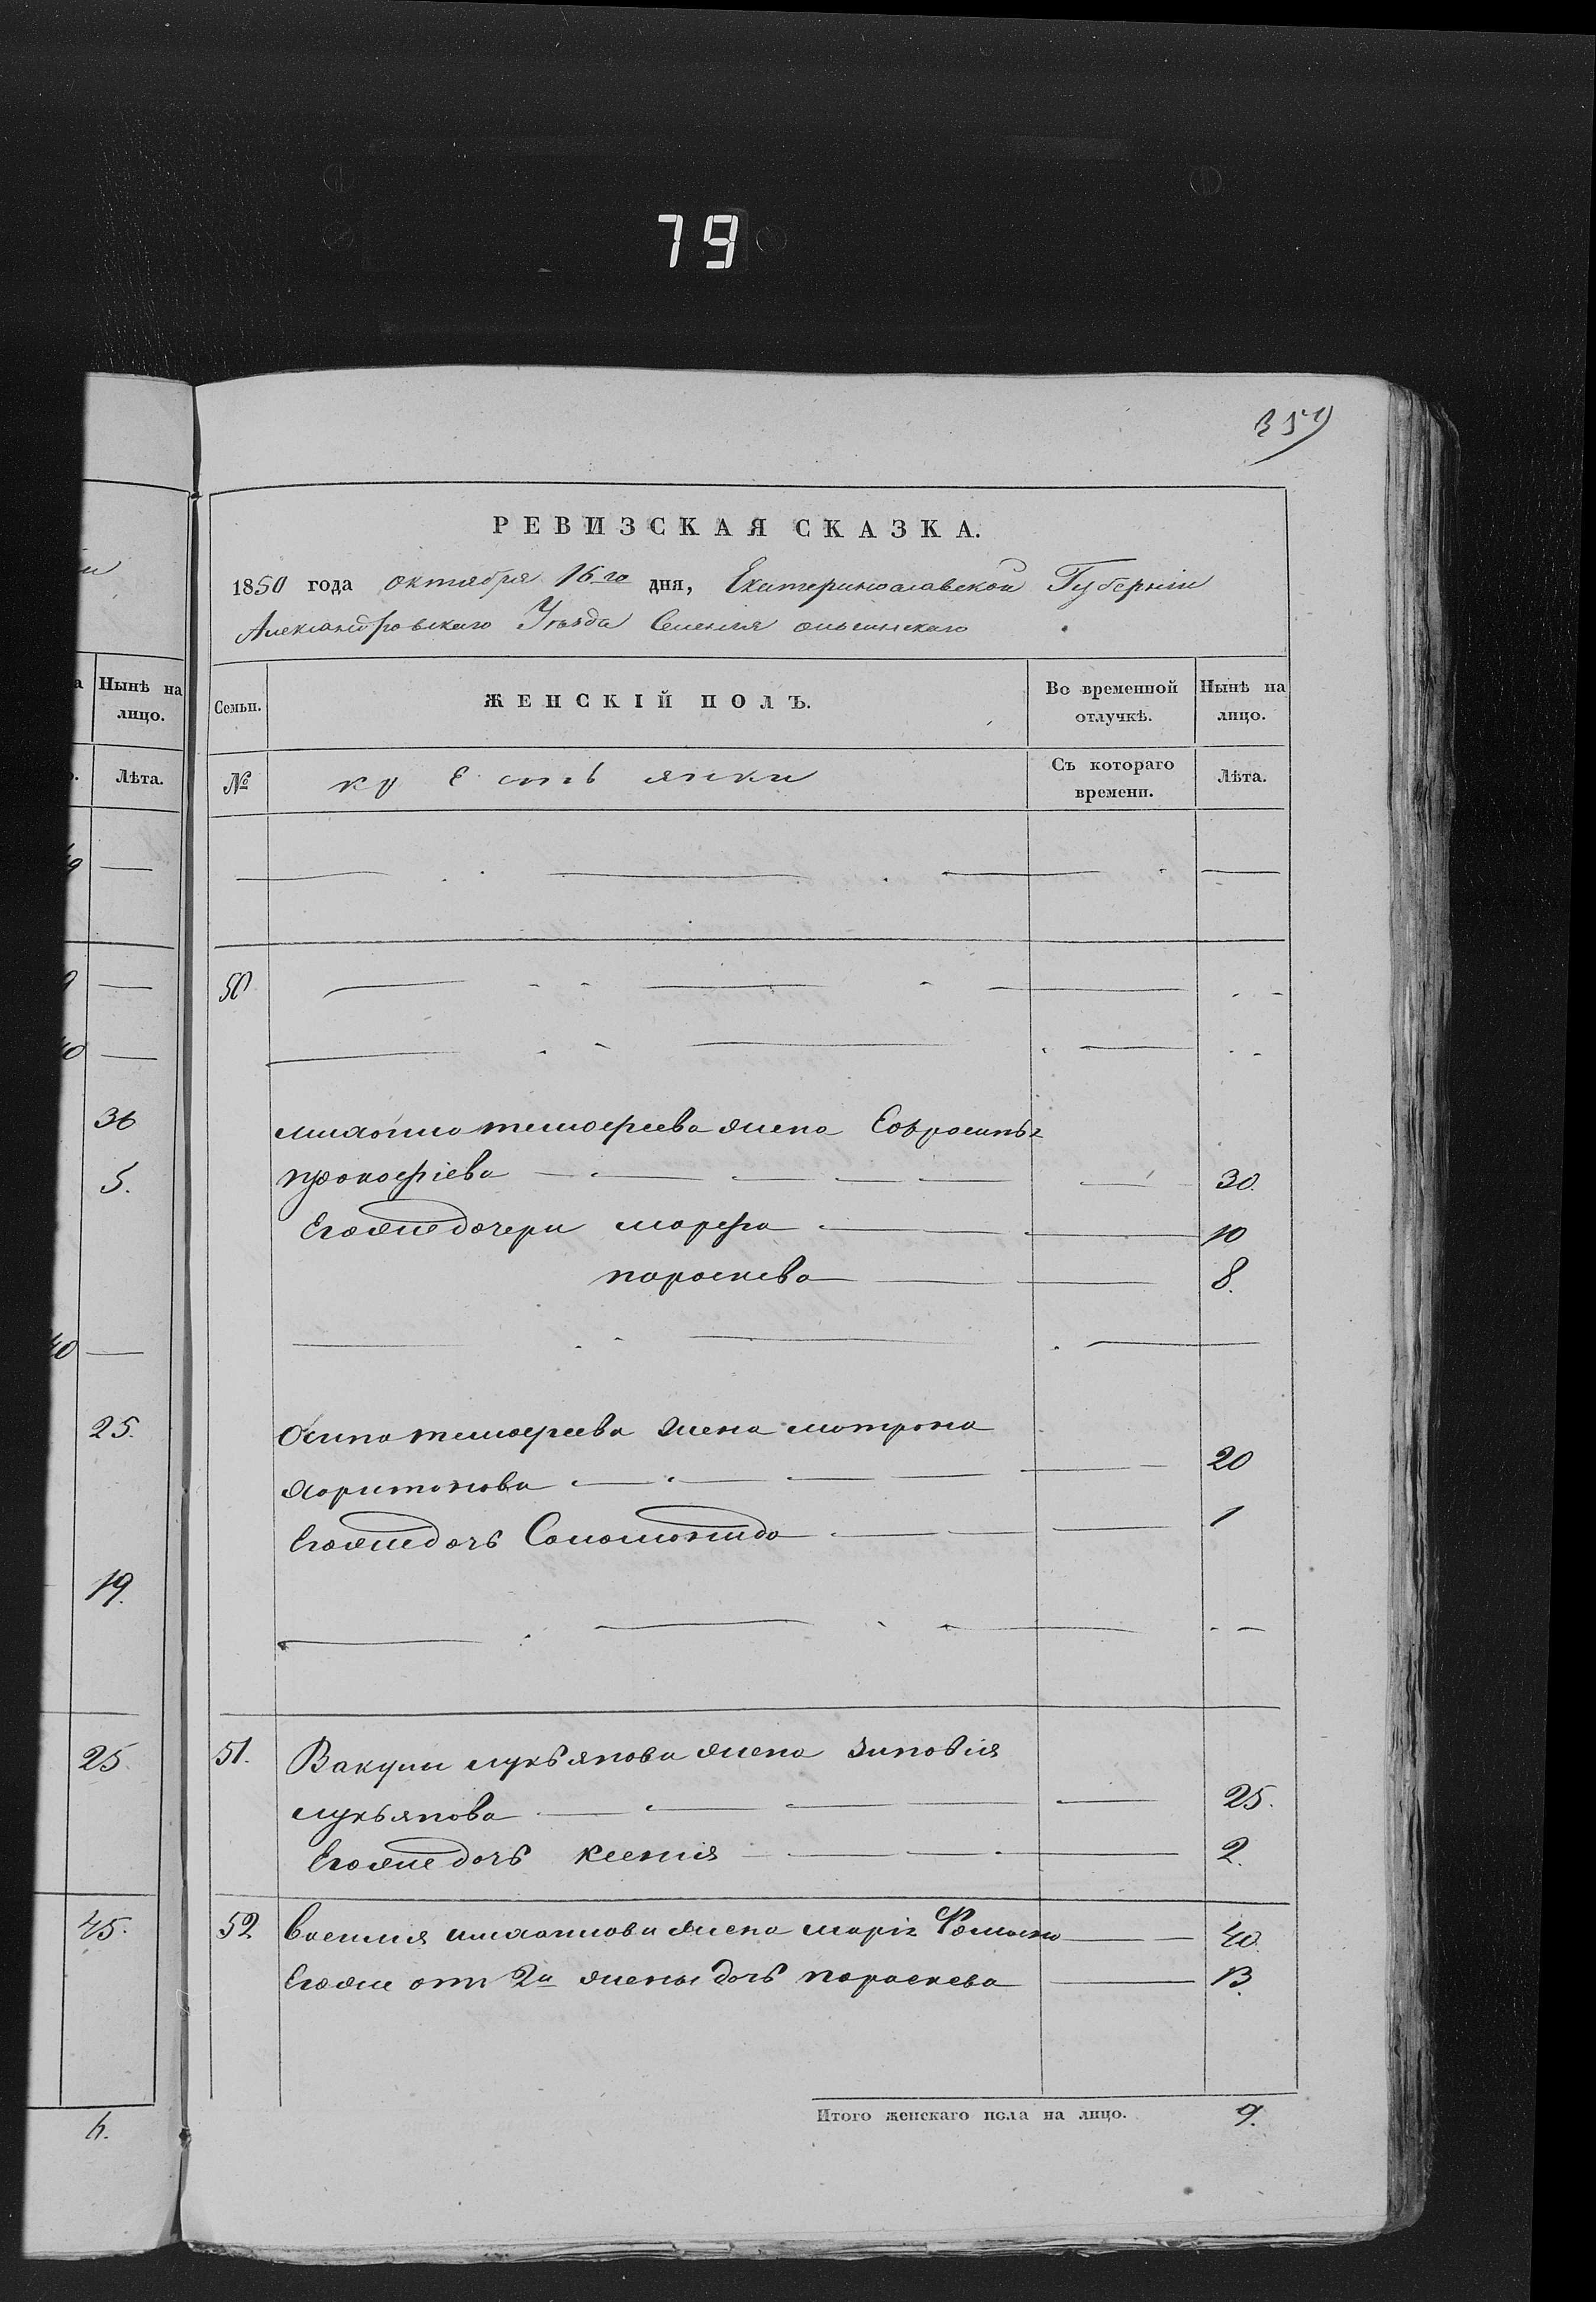 79
359
РЕВИЗСКАЯ СКАЗКА.
1850 года октября 16го дня, Екатеринославской Губерніи
Александровскаго Уѣзда Селенія
Нынѣ на лицо.
Лѣта.
36
5.
25.
19.
25.
45.
Семьи.
ЖЕНСКІЙ ПОЛЪ.
Во временной отлучкѣ.
Нынѣ на лицо.
№
крестьянки
Съ котораго времени.
Лѣта.
50
михайла тимофеева жена Ефросинья
прокофіева 30.
Егожедочери марфа 10
параскева 8.
Осипа тимофеева жена матрона
харитонова 20
Егожедочь Соломонида 1
51. Вакулы лукьянова жена зиновія
лукьянова 25.
Егоже дочь ксенія 2.
52 василия жена 40.
Егоже отъ 2й жены дочь параскева 13.
Итого женскаго пола на лицо. 9.